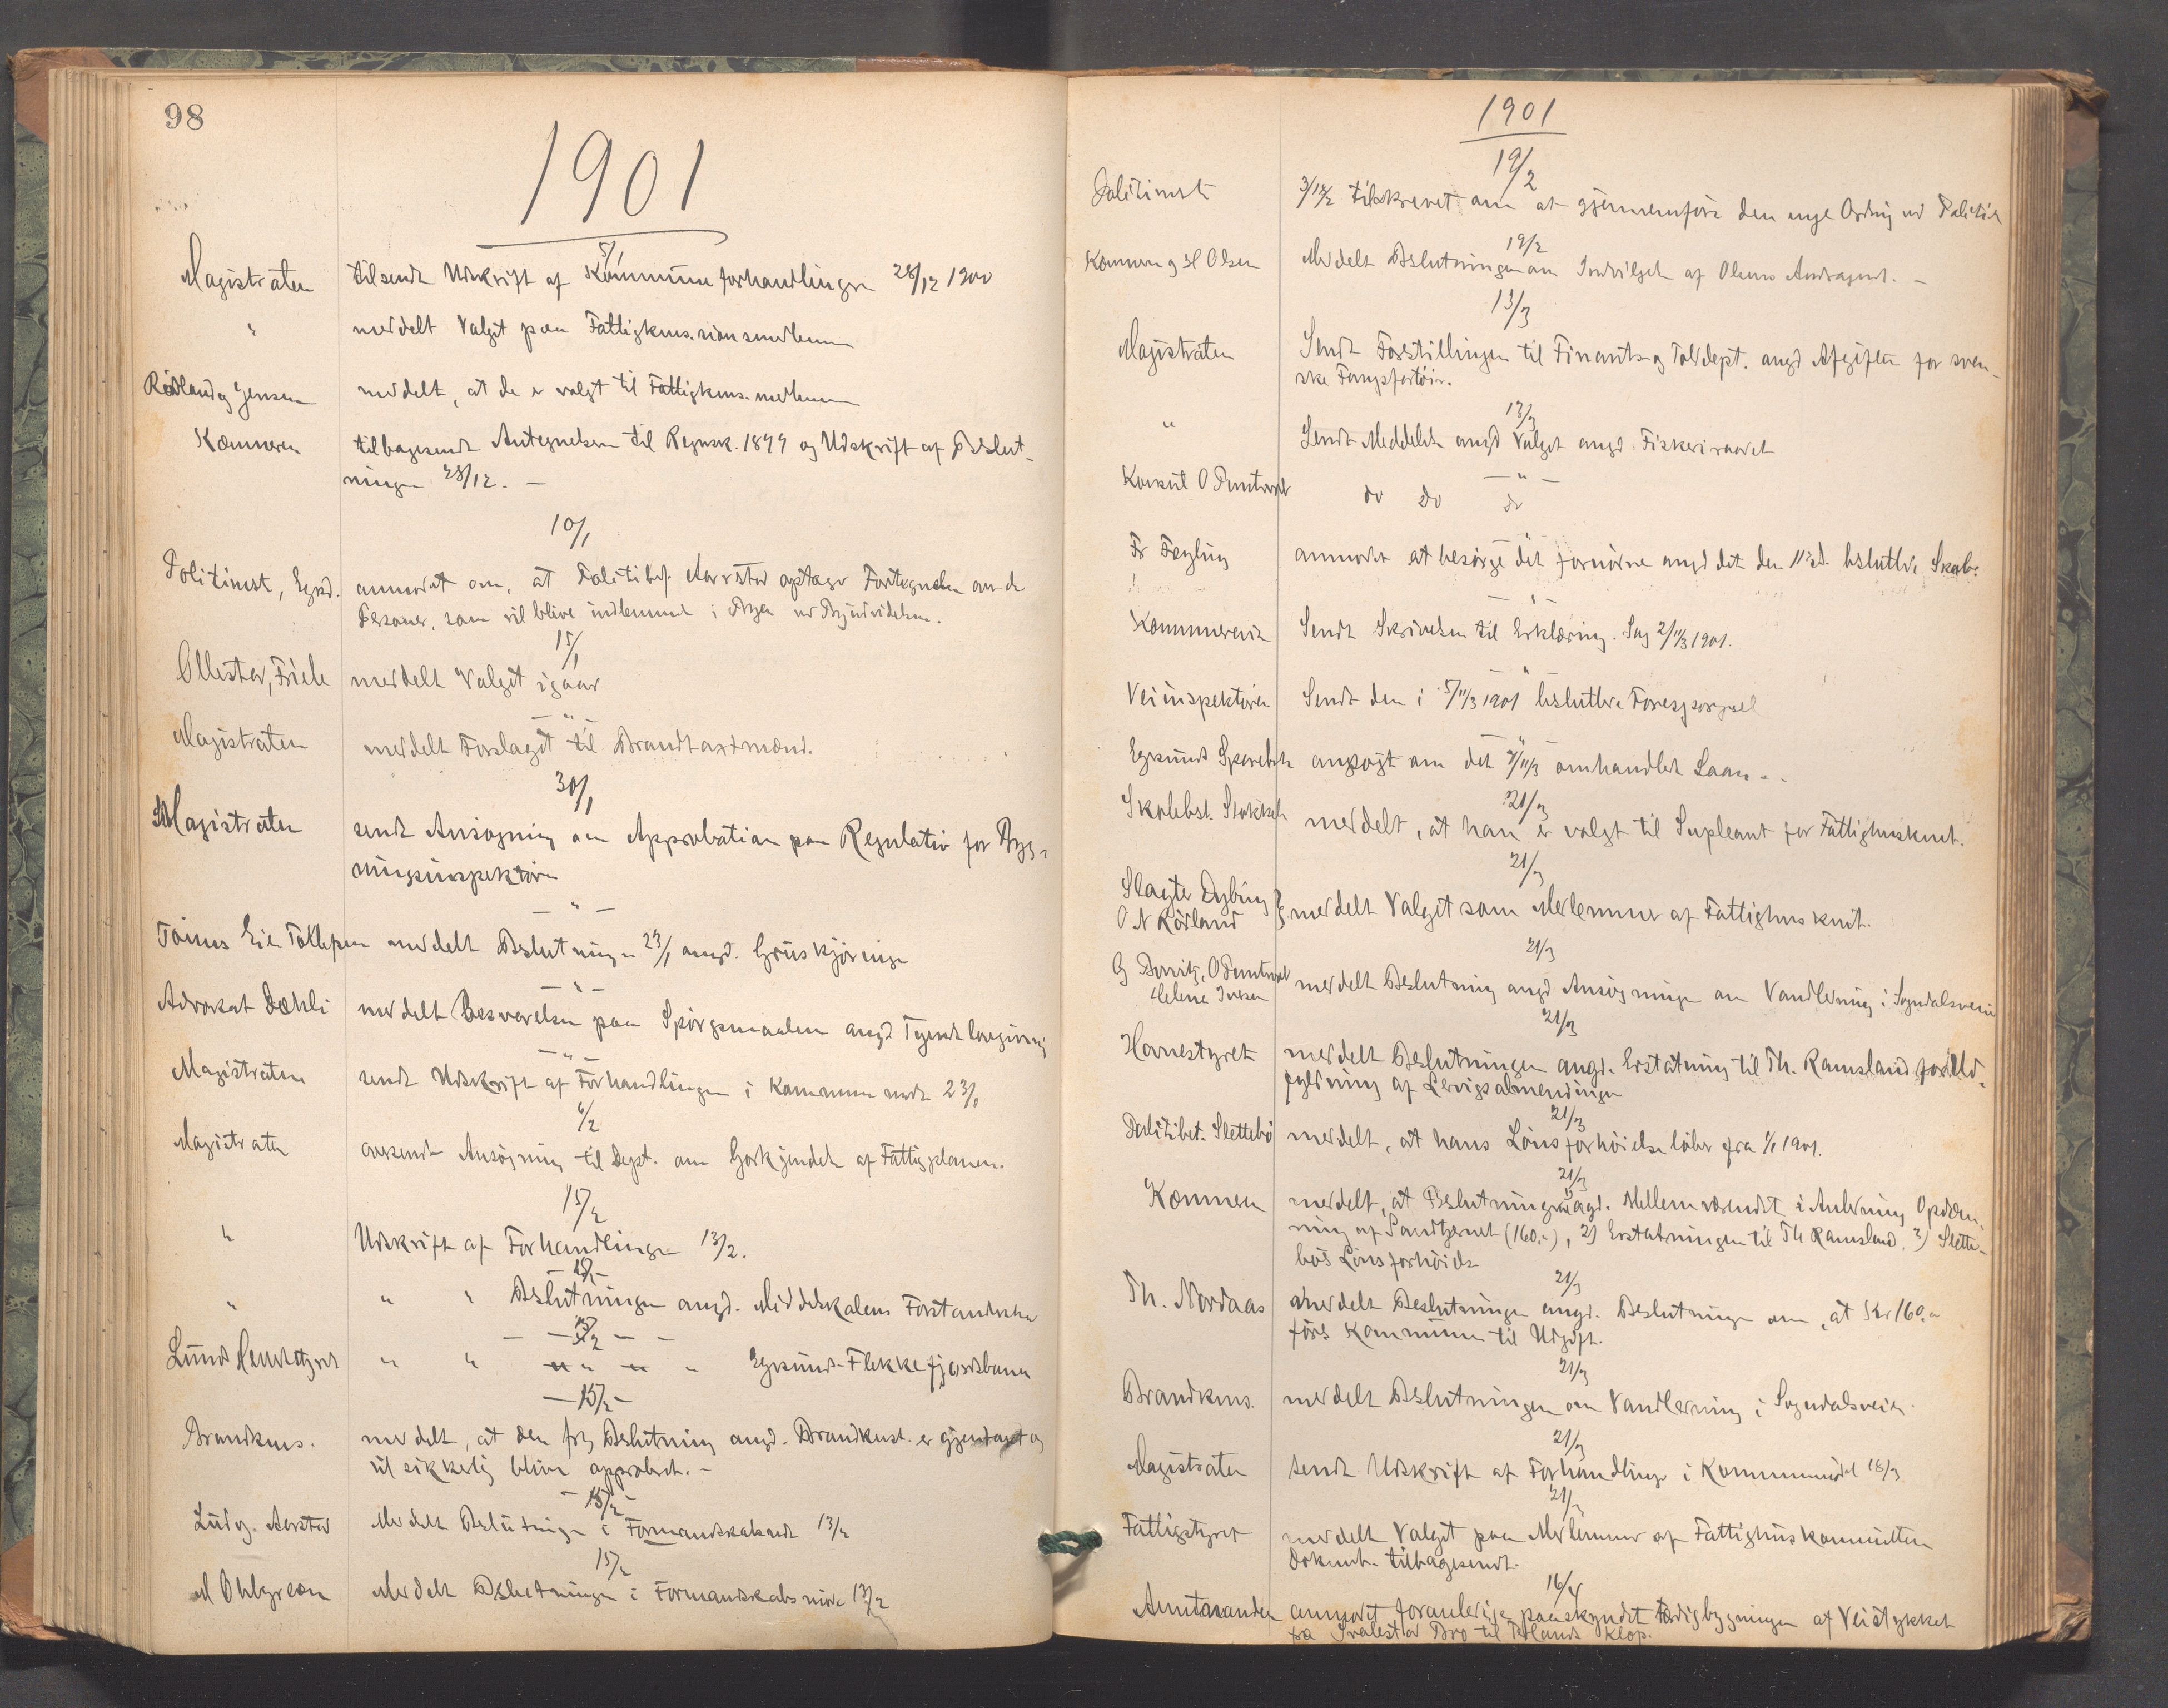 98
1901
5/1
Magistraten tilsendt Udskrift af Kommuneforhandlingen 28/12 1900
" meddelt Valget paa Fattigkms.sionsmedlemm
Rödland og Jensen meddelt, at de er valgt til Fattigkms. medlemm
Kæmneren tilbagesendt Antegnelsen til Regnsk. 1899 og Udskrift af Beslut-
ningen 28/12. –
10/1
Politimst, Egsd. anmodet om, at Politibetj. Aarstad optager Fortegnelse over de
Personer, som vil blive indlemmet i Byen ved Byudvidelsen.
15/1
Ollestad, Friele meddelt Valget igaar
– " –
Magistraten meddelt Forslaget til Brandtaxtmænd.
30/1
Magistraten sendt Ansøgning om Approbation paa Regulativ for Byg-
ningsinspektören
– " –
Tönnes Eik Tollefsen meddelt Beslutningen 23/1 angd. Gruskjøringen
– " –
Advokat Dæhli meddelt Besvarelsen paa Spörgsmaalene angd Tyendelovgivning
– " –
Magistraten sendt Udskrift af Forhandlingen i Kommunemøde 23/1
6/2
Magistraten oversendt Ansøgning til Dept. om Godkjendelse af Fattigplanen.
15/2
" Udskrift af Forhandlingen 13/2.
– 15/2 –
" " " Beslutningen angd. Middelskolens Forstanderska
– – 15/2 – –
Lund Herredstyret " " " " Egersund-Flekkefjordsbanen
– 15/2 –
Brandkms. meddelt, at den frg Beslutning angd. Brandkonst. er gjentaget og
vil sikkerlig blive approberet. –
– 15/2 –
Ludv. Aarstad Meddelt Beslutningen i Formandskabsmøde 13/2
15/2
M Ohlgreen Meddelt Beslutningen i Formandskabsmøde 13/2
1901
19/2
Politimst 3/12/2 tilskrevet om at gjennemføre den nye Ordning ved Politiet
19/2
Kæmneren og H Olsen Meddelt Beslutningen om Indvilgelse af Olsens Andragende. –
13/3
Magistraten Sendt Forstillingen til Finants og Tolddept. angd Afgiften for sven-
ske Fangsfartöier.
13/3
" Sendt Meddelelse angd Valget angd Fiskeriraadet
– " –
Konsul O Puntervold do do do
"
Fr Feyling anmodet at besörge det fornødne angd det den 11te ds. besluttede Skab.
– " –
Kæmneren Sendt Skrivelsen til Erklæring. Sag 2/11/3 1901.
– " –
Veiinspektören Sendt den i 5/11/3 1901 besluttede Forespørgsel
– " –
Egersunds Sparebank ansøgt om det 9/11/3 omhandlet Laan. –
21/3
Skolebst. Stokken meddelt, at han er valgt til Supleant for Fattighuskmt.
21/3
Slagter Dybing
O N Rödland } meddelt Valget som Medlemmer af Fattighuskmit.
21/3
G Dervitz, O Puntervold
Helene Iversen meddelt Beslutning angd Ansøgningen om Vandledning i Sogndalsveien
21/3
Havnestyret meddelt Beslutningen angd. Erstatning til Th. Ramsland for Ud-
fyldning af Lervigsalmendingen
21/3
Politibet. Slettebö meddelt, at hans Lönsforhöielse löber fra 1/1 1901.
21/3
Kæmneren meddelt, at Beslutningen 1) angd. Mellemværendet i Anledning Opdæm-
ning af Sandtjernet (160.-), 2) Erstatningen til Th Ramsland, 3) Slette-
bös Lönsforhöielse
21/3
Th. Nordaas Meddelt Beslutningen angd. Beslutningen om, at Kr 160.-
förs Kommunen til Udgift.
21/3
Brandkms. meddelt Beslutningen om Vandledning i Sogndalsveien.
21/3
Magistraten sendt Udskrift af Forhandlingen i Kommunemødet 18/3
21/3
Fattigstyret meddelt Valget paa Medlemmer af Fattighuskommitten
Dokumt. tilbagesendt.
16/4
Amtmanden anmodet foranledigen paaskyndet Færdigbygningen af Veistykket
fra Svalestad Bro til Klop.